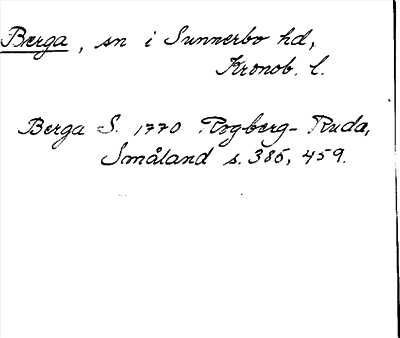 Berga, sn i Sunnerbo hd,
Kronob. l.
Berga S. 1770 Rogberg-Ruda,
Småland s. 385, 459.